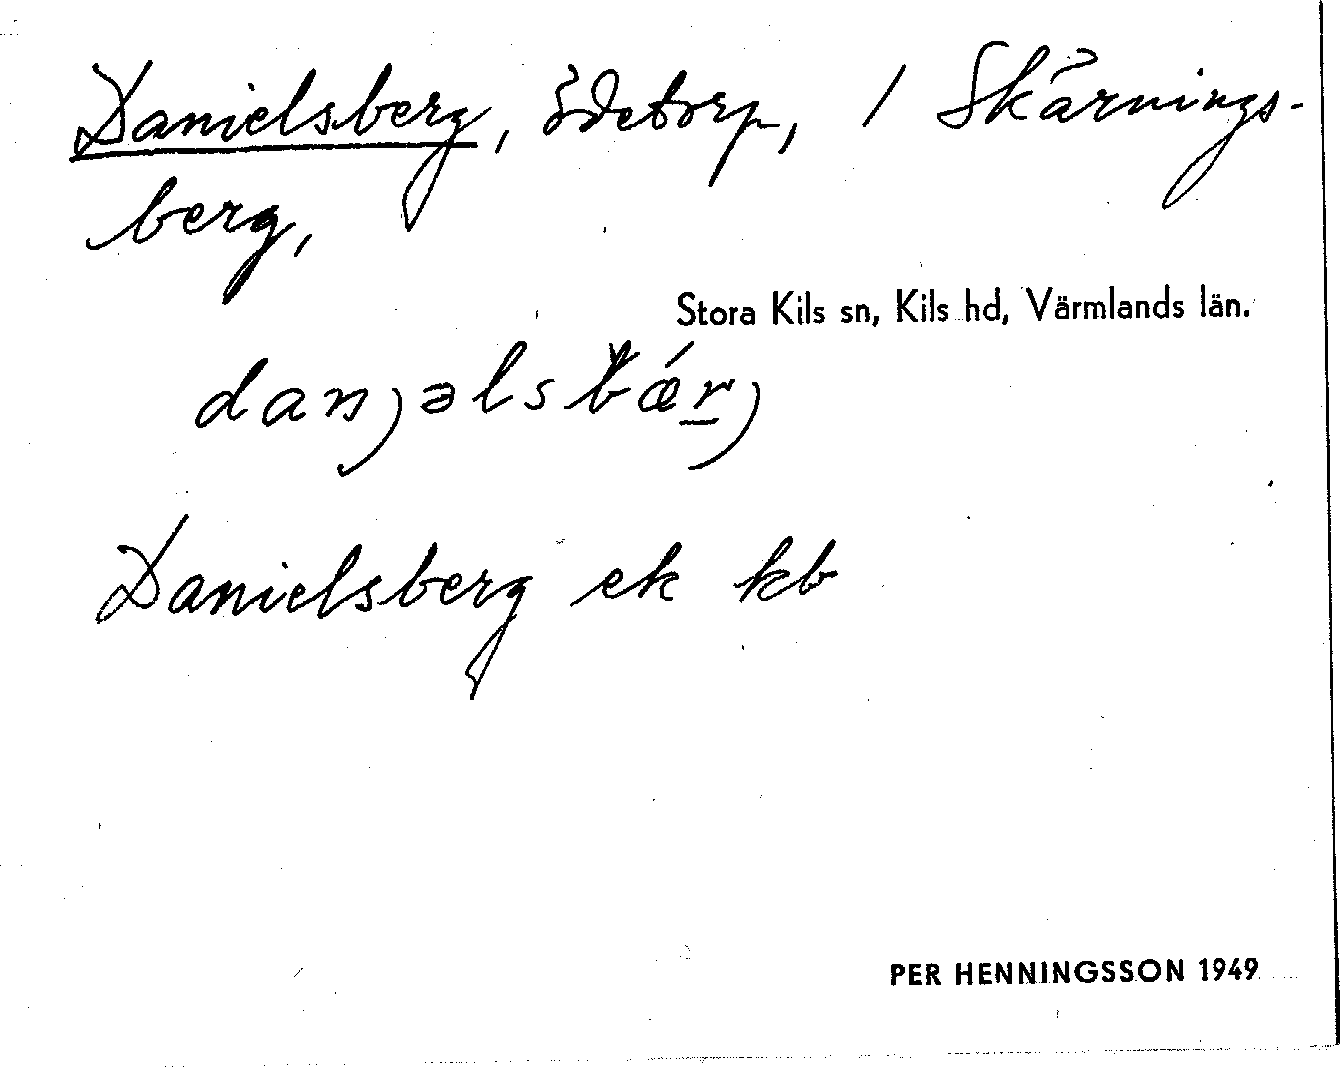 Danielsberg, ödetorp, / Skärnings-
berg,
Stora Kils sn, Kils hd, Värmlands län.
danjəlsbǽrj
Danielsberg ek kb
PER HENNINGSSON 1949